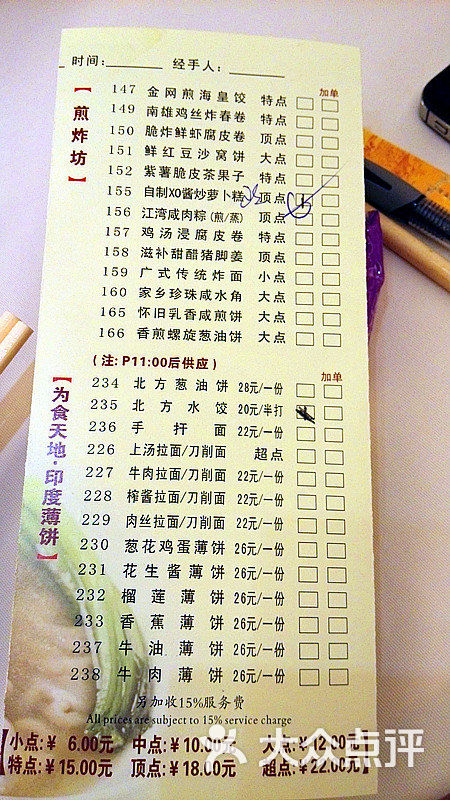 时间: 经手人:
加单
【煎炸坊】
147 金网煎海皇饺 特点
149 南雄鸡丝炸春卷 特点
150 脆炸鲜虾腐皮卷 顶点
151 鲜红豆沙窝饼 大点
152 紫薯脆皮茶果子 特点
155 自制XO酱炒萝卜糕 顶点
156 江湾咸肉粽(煎/蒸) 顶点
157 鸡汤浸腐皮卷 特点
158 滋补甜醋猪脚姜 顶点
159 广式传统炸面 小点
160 家乡珍珠咸水角 大点
165 怀旧乳香咸煎饼 大点
166 香煎螺旋葱油饼 大点
(注: P11:00后供应)
加单
【为食天地·印度薄饼】
234 北方葱油饼 28元/一份
235 北方水饺 20元/半打
236 手扞面 22元/一份
226 上汤拉面/刀削面 超点
227 牛肉拉面/刀削面 22元/一份
228 榨酱拉面/刀削面 22元/一份
229 肉丝拉面/刀削面 22元/一份
230 葱花鸡蛋薄饼 26元/一份
231 花生酱薄饼 26元/一份
232 榴莲薄饼 26元/一份
233 香蕉薄饼 26元/一份
237 牛油薄饼 26元/一份
238 牛肉薄饼 26元/一份
另加收15%服务费
All prices are subject to 15% service charge
【小点:¥ 6.00元 中点:¥10.00元 大点:¥12.00元
特点:¥15.00元 顶点:¥18.00元 超点:¥22.00元】
大众点评